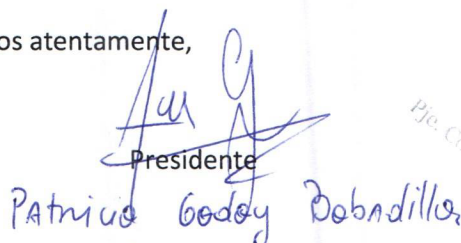 os atentamente,
Presidente
PAtricia Godoy Bobadilla
Pje. C